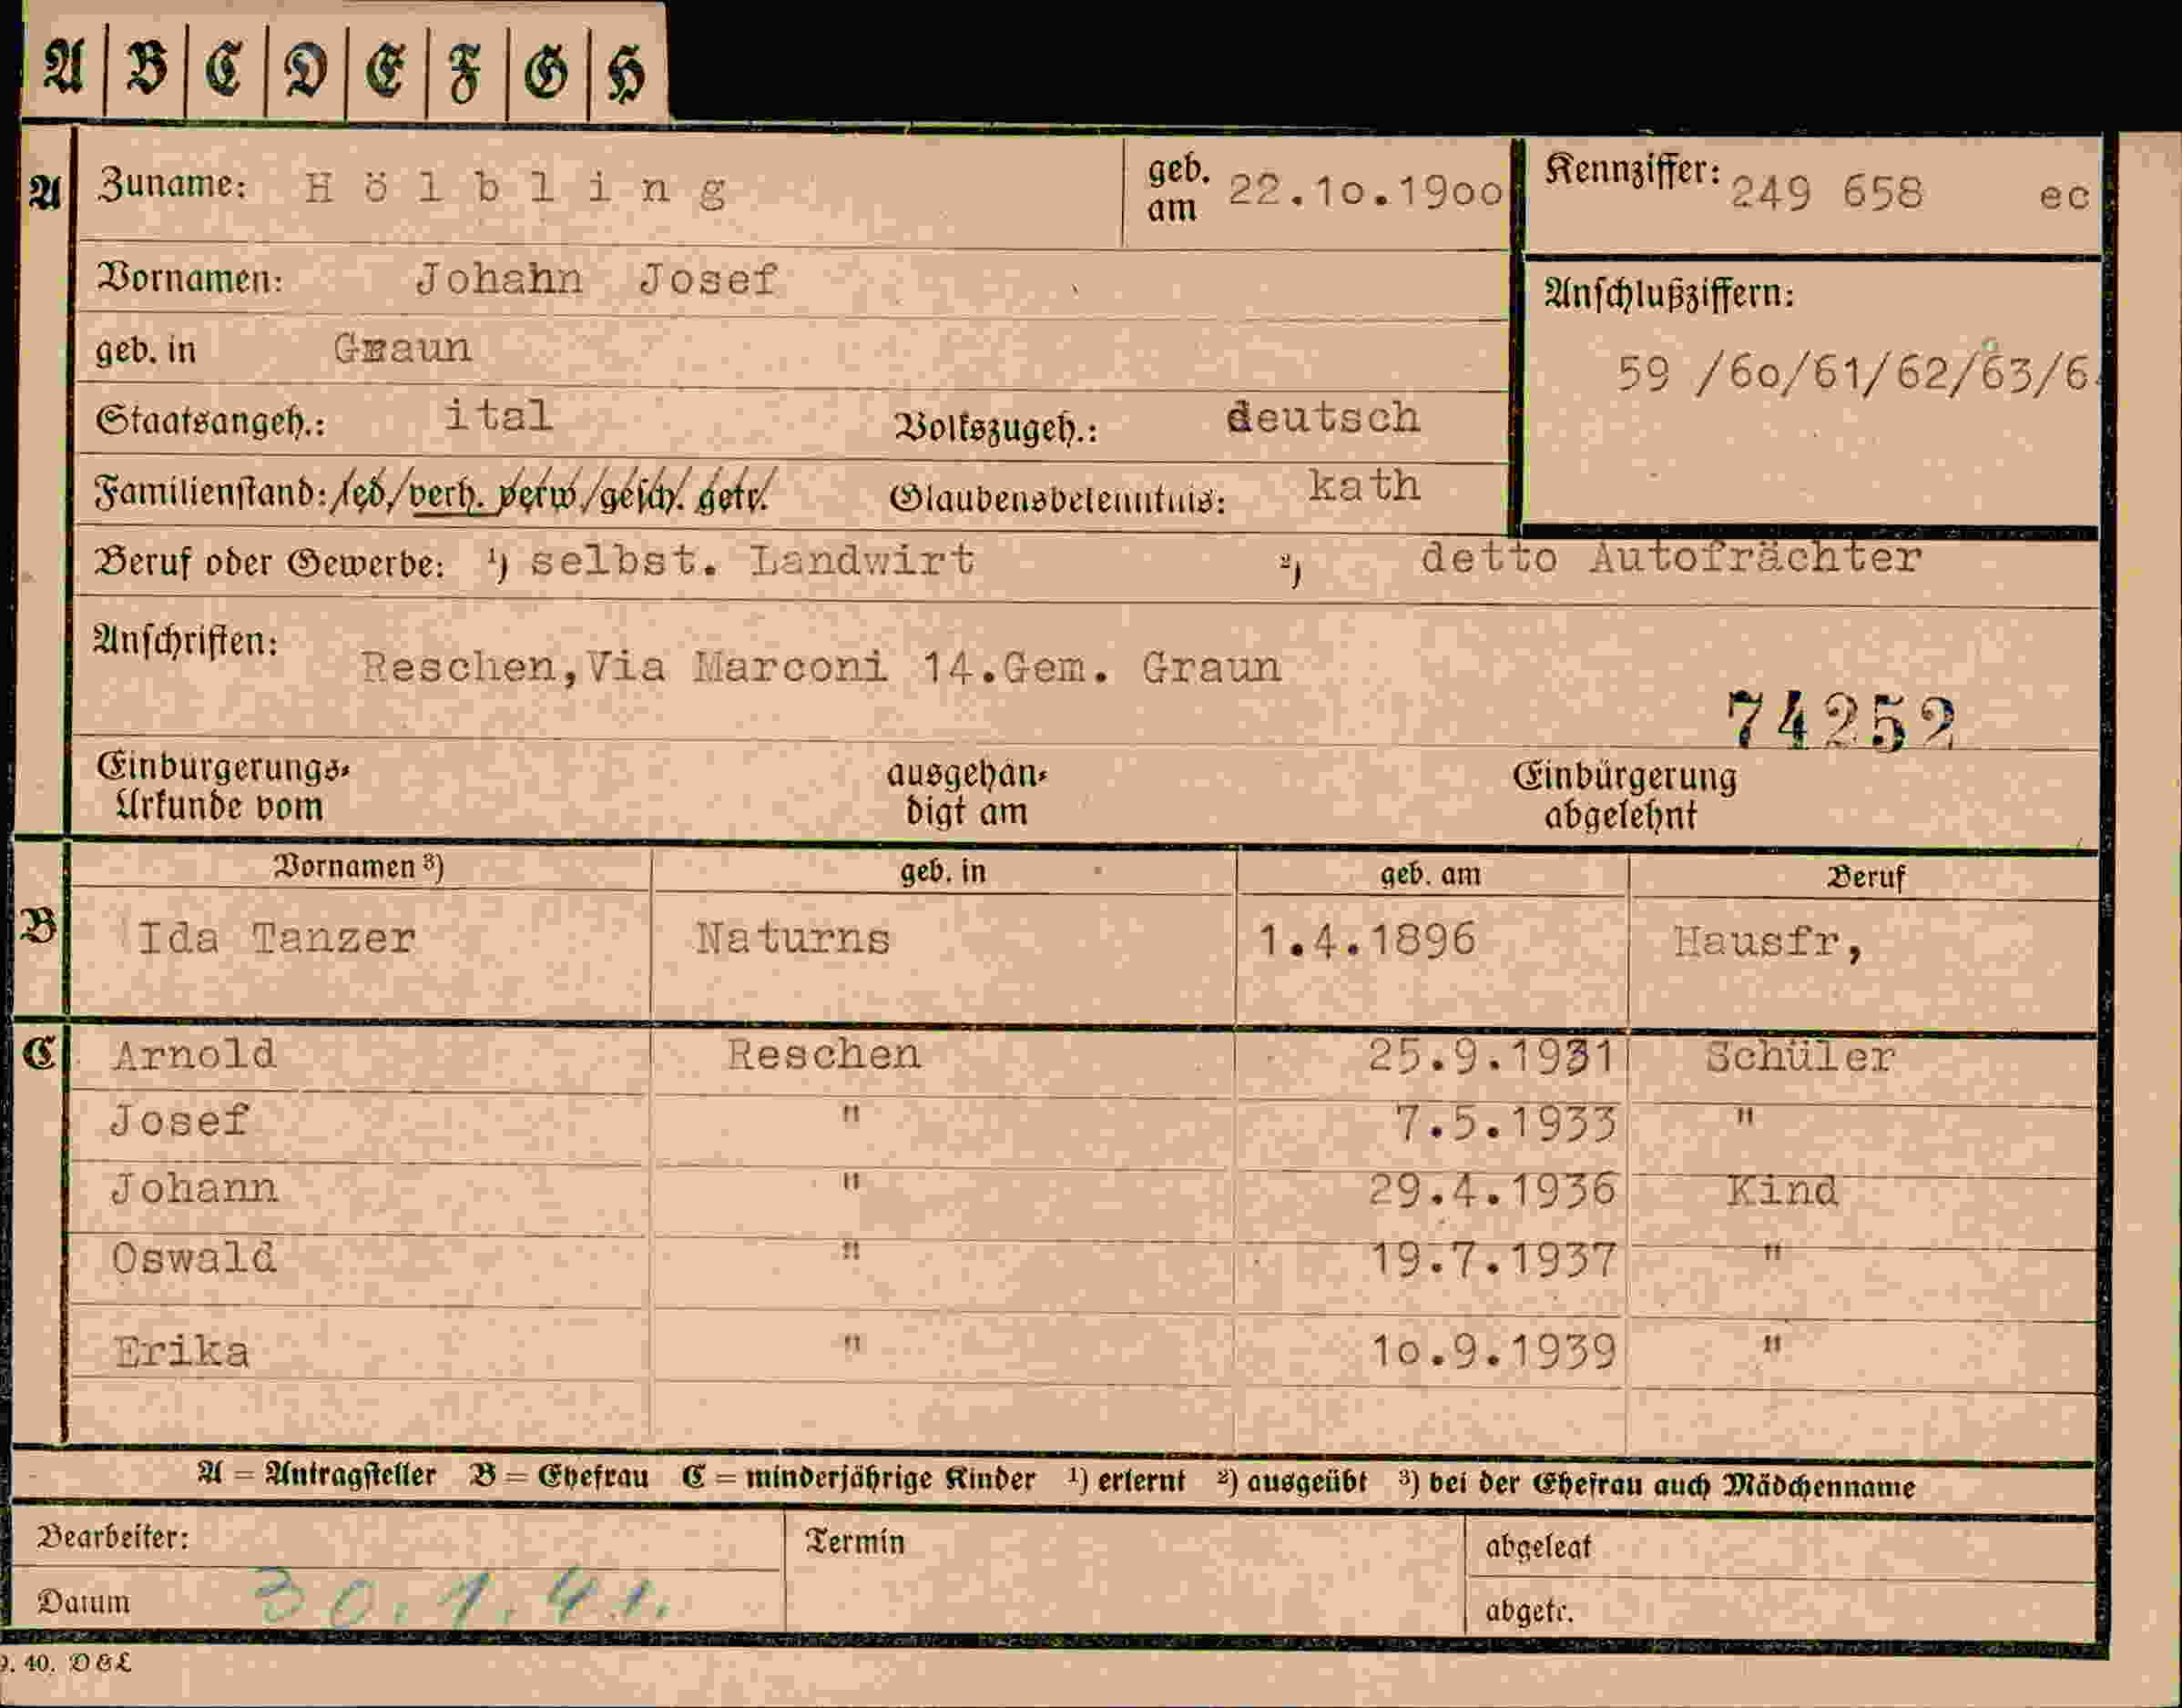 A | B | C | D | E | F | G | H
A Zuname: Hölbling geb. am 22.10.1900 Kennziffer: 249 658 ec
Vornamen: Johahn Josef
Anschlußziffern:
geb. in Graun
59 /60/61/62/63/6
Staatsangeh.: ital Volkszugeh.: deutsch
Familienstand: led. verh. verw. gesch. getr. Glaubensbekenntnis: kath
Beruf oder Gewerbe: ¹) selbst. Landwirt ²) detto Autofrächter
Anschriften: Reschen,Via Marconi 14.Gem. Graun
74252
Einbürgerungs-Urkunde vom ausgehändigt am Einbürgerung abgelehnt
Vornamen ³) geb. in geb. am Beruf
B Ida Tanzer Naturns 1.4.1896 Hausfr,
C Arnold Reschen 25.9.1931 Schüler
Josef " 7.5.1933 "
Johann " 29.4.1936 Kind
Oswald " 19.7.1937 "
Erika " 10.9.1939 "
A = Antragsteller B = Ehefrau C = minderjährige Kinder ¹) erlernt ²) ausgeübt ³) bei der Ehefrau auch Mädchenname
Bearbeiter: Termin abgelegt
Datum 30.1.41. abgetr.
9. 40. D & L